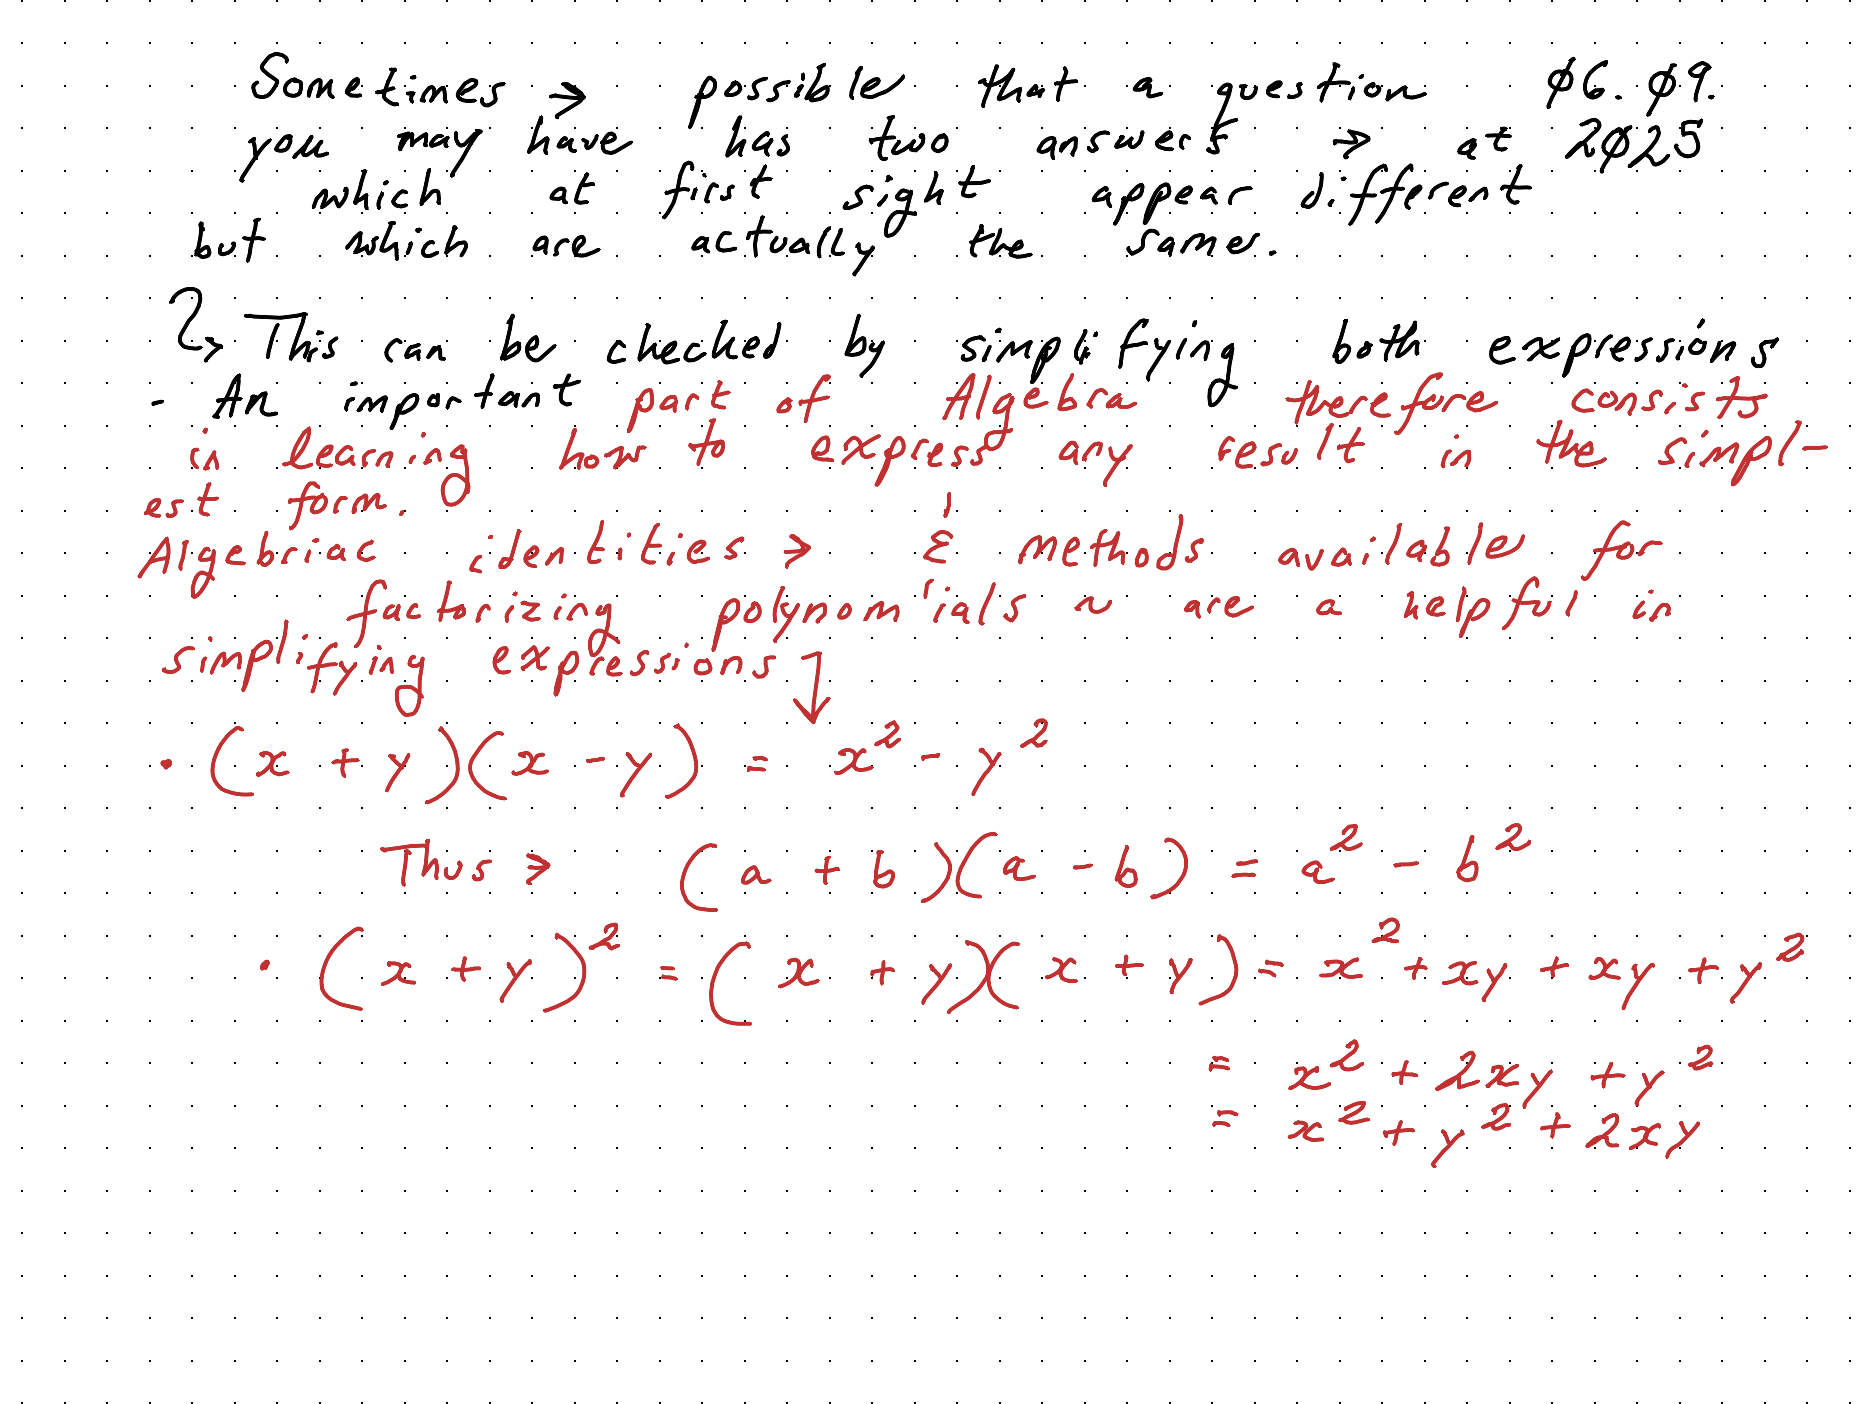 Sometimes → possible that a question ø6.ø9.
you may have has two answers → at 2ø25
which at first sight appear different
but which are actually the same.
↳ This can be checked by simplifying both expressions
- An important part of Algebra therefore consists
in learning how to express any result in the simpl-
est form.
Algebriac identities → & methods available for
factorizing polynomials ~ are a helpful in
simplifying expressions ↓
• (x + y)(x - y) = x² - y²
Thus → (a + b)(a - b) = a² - b²
• (x + y)² = (x + y)(x + y) = x² + xy + xy + y²
= x² + 2xy + y²
= x² + y² + 2xy